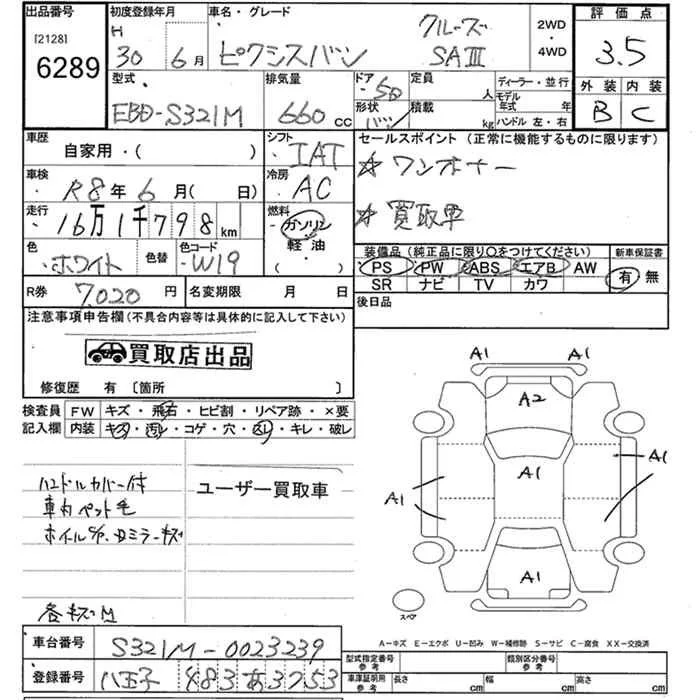 出品番号 初度登録年月 車名・グレード 2WD・4WD 評価点
[2128] 6289
H 30 6月 ピクシスバン クルーズ SAⅢ 3.5
型式 排気量 ドア 定員 ディーラー・並行 外装 内装
EBD-S321M 660 cc 5D 人 モデル年式 年 B C
形状 バン 積載 kg ハンドル 左・右
車歴 シフト セールスポイント (正常に機能するものに限ります)
自家用・( ) IAT ☆ワンオーナー
車検 冷房
R8年 6月( 日) AC
走行 燃料 ☆買取車
16万1千798 km ガソリン
色 色替 色コード 軽油
ホワイト W19 ( )
装備品 (純正品に限り○をつけてください) 新車保証書
PS PW ABS エアB AW 有 無
SR ナビ TV カワ
R券 7,020 円 名変期限 月 日 後日品
注意事項申告欄(不具合内容等は具体的に記入して下さい)
買取店出品
修復歴 有 〔箇所 〕
検査員 FW キズ・飛石・ヒビ割・リペア跡・×要
記入欄 内装 キズ・汚レ・コゲ・穴・スレ・キレ・破レ
ハンドルカバー付
車内ペット毛
ユーザー買取車
各キズM
A1 A1
A2
A1
A1
A1
A1
スペア
A-キズ E-エクボ U-凹み W-補修跡 S-サビ C-腐食 XX-交換済
車台番号 S321M-0023239
登録番号 八王子 483 あ 3753
型式指定番号 参考 類別区分番号 参考
車庫証明用 参考 長さ cm 幅 cm 高さ cm